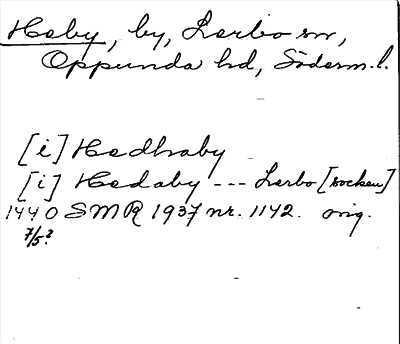 Haby, by, Lerbo sn,
Oppunda hd, Söderm.l.
[i] Hadhaby
[i] Hadaby --- Lerbo [socken]
1440 SMR 1937 nr. 1142. orig.
7/5?